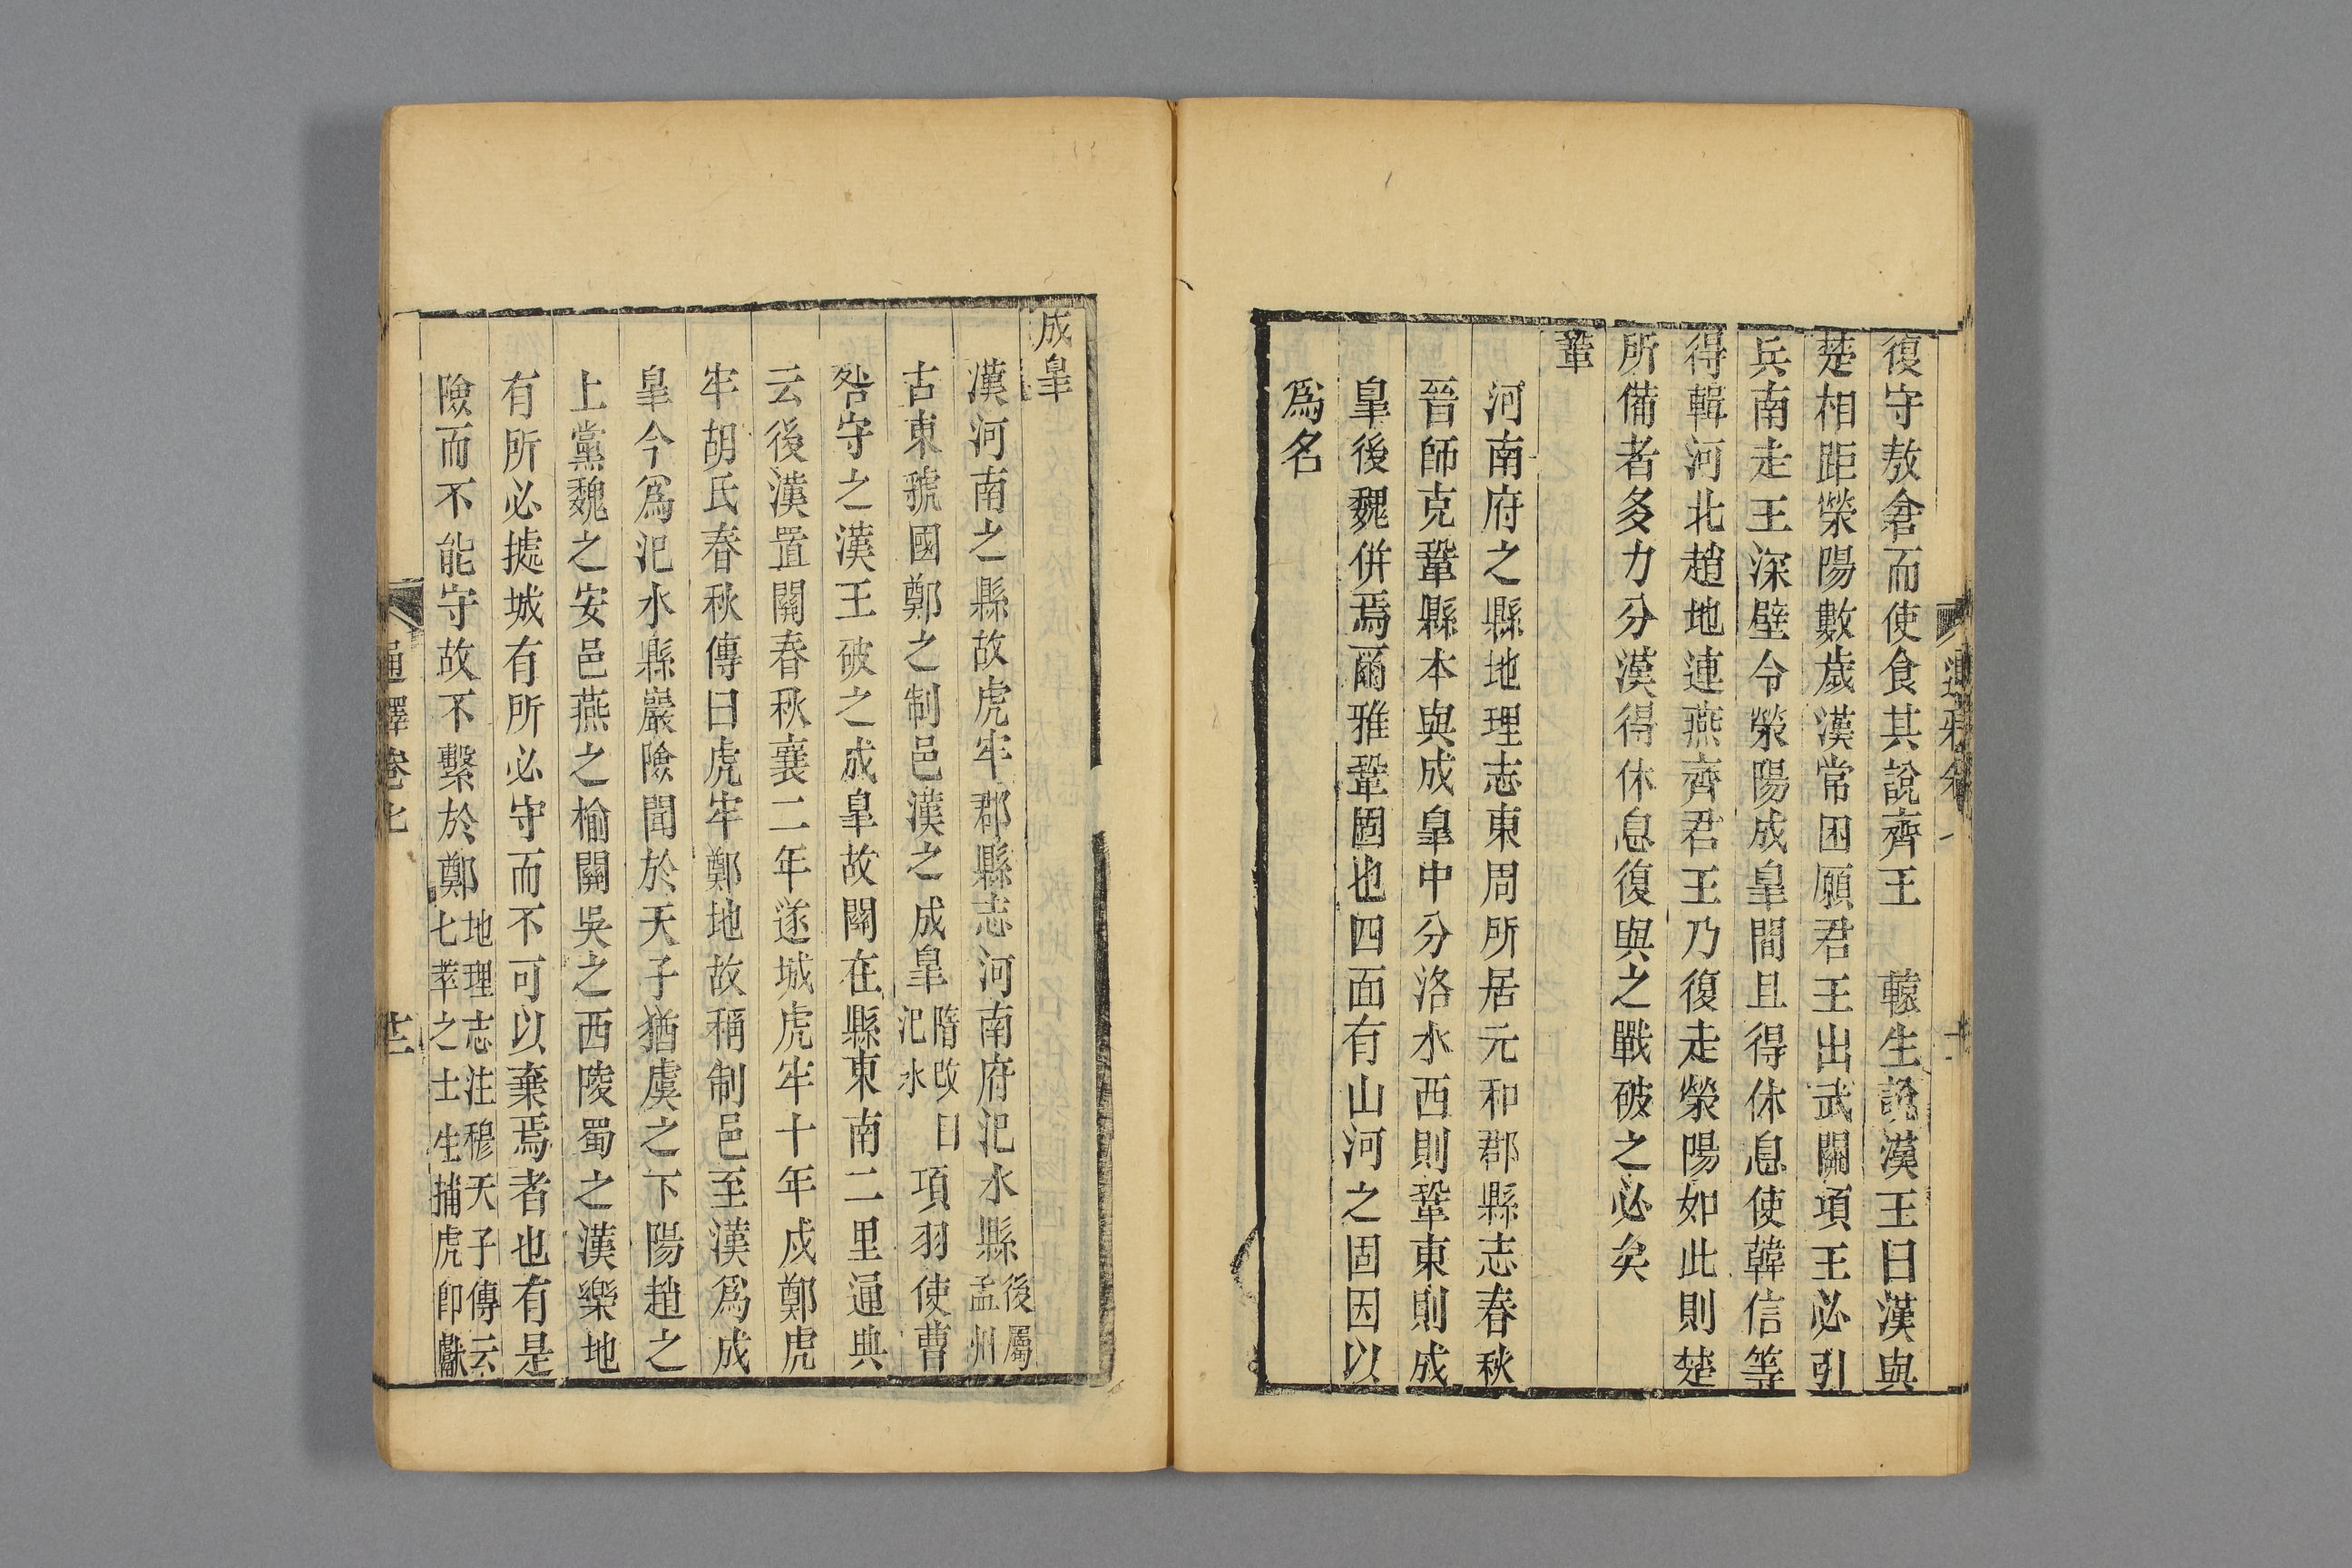 復守敖倉而使食其說齊王　轅生說漢王曰漢與
楚相距滎陽數歲漢常困願君王出武關項王必引
兵南走王深壁令滎陽成皐間且得休息使韓信等
得輯河北趙地連燕齊君王乃復走滎陽如此則楚
所備者多力分漢得休息復與之戰破之必矣
鞏
河南府之縣地理志東周所居元和郡縣志春秋
晉師克鞏縣本與成皐中分洛水西則鞏東則成
皐後魏併焉爾雅鞏固也四面有山河之固因以
爲名
成皐
漢河南之縣故虎牢郡縣志河南府汜水縣後屬孟州
古東虢國鄭之制邑漢之成皐隋改曰汜水項羽使曹
咎守之漢王破之成皐故關在縣東南二里通典
云後漢置關春秋襄二年遂城虎牢十年戍鄭虎
牢胡氏春秋傳曰虎牢鄭地故稱制邑至漢爲成
皐今爲汜水縣巖險聞於天子猶虞之下陽趙之
上黨魏之安邑燕之榆關吳之西陵蜀之漢樂地
有所必據城有所必守而不可以棄焉者也有是
險而不能守故不繫於鄭地理志注穆天子傳云七萃之士生捕虎即獻
通釋卷七